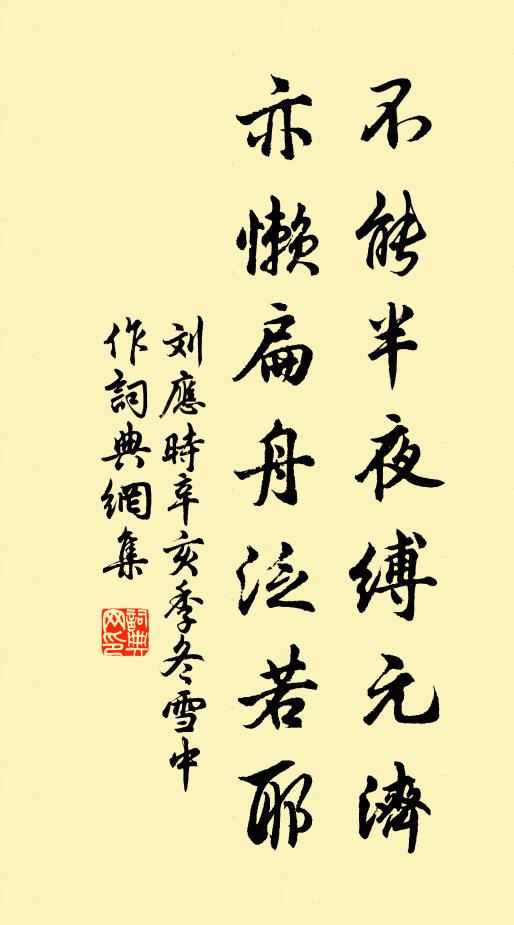 不能半夜縛元濟
亦懶扁舟泛若耶
刘應時辛亥季冬雪中
作詞典網集
詞典
网印